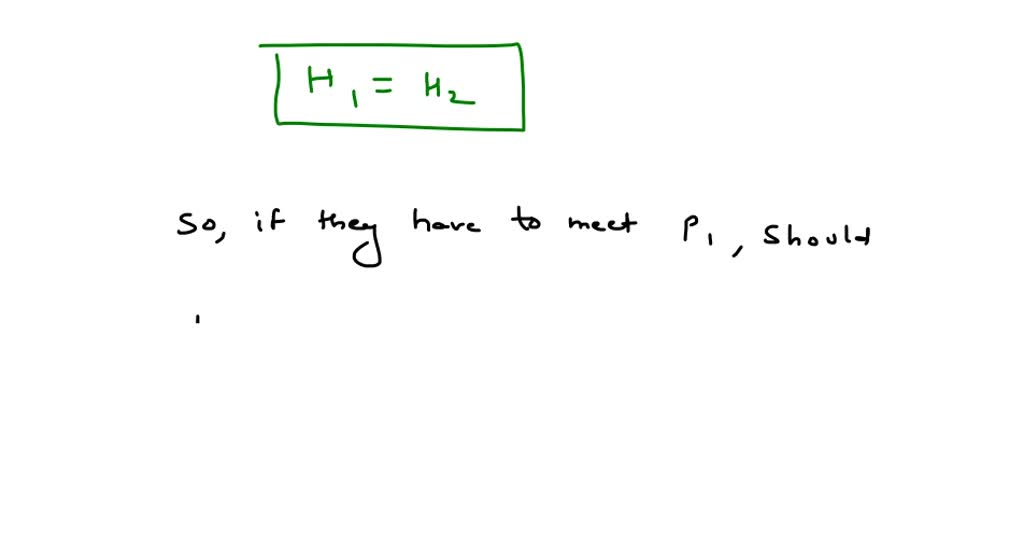 H₁ = H₂
So, if they have to meet P₁, should